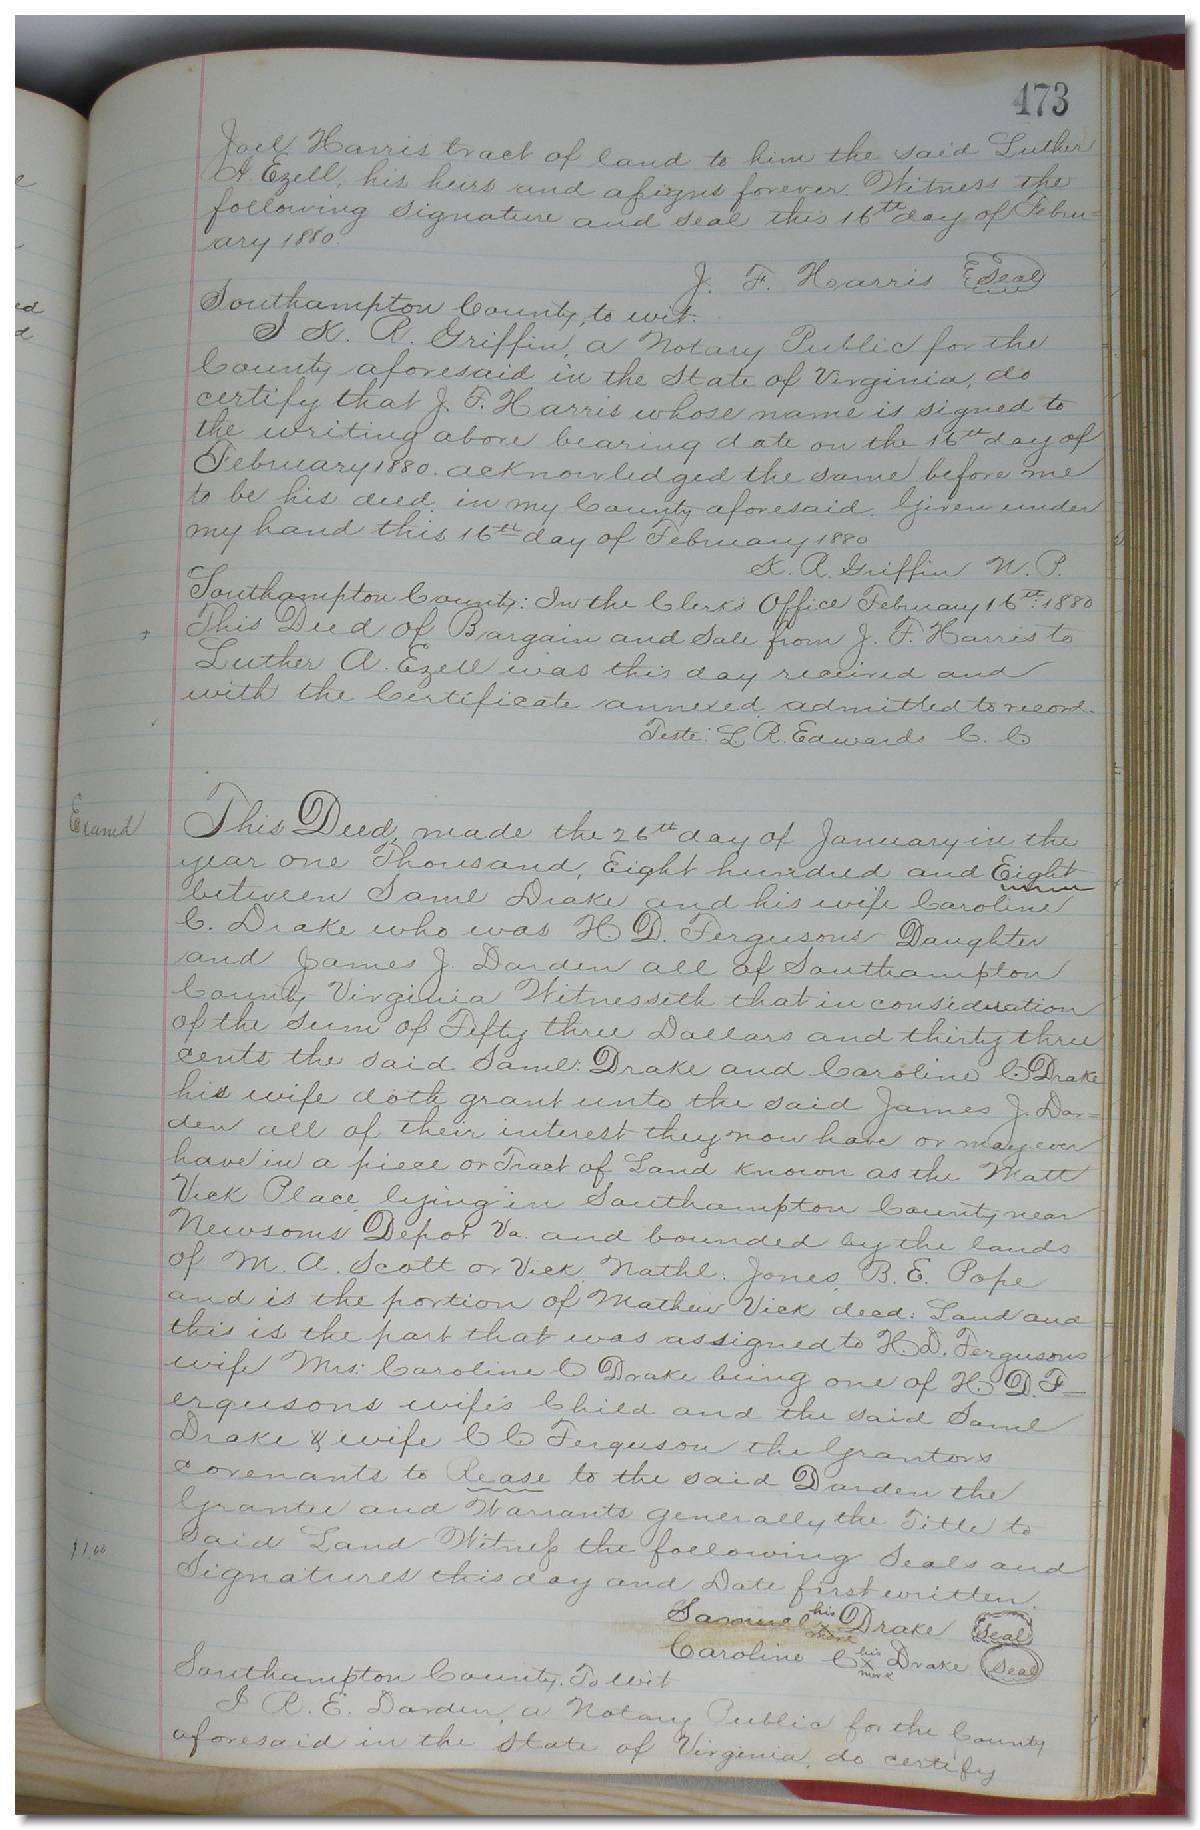 473
Joel Harris tract of land to him the said Luther
A Ezell, his heirs and assigns forever. Witness the
following signature and seal this 16th day of Febru=
ary 1880.
J. F. Harris Seal
Southampton County, to wit:
I K. R. Griffin, a Notary Public for the
County aforesaid in the State of Virginia, do
certify that J. F. Harris whose name is signed to
the writing above bearing date on the 16th day of
February 1880. acknowledged the same before me
to be his deed in my County aforesaid. Given under
my hand this 16th day of February 1880
K. R. Griffin N. P.
Southampton County: In the Clerk's Office February 16th: 1880
This Deed of Bargain and Sale from J. F. Harris to
Luther A. Ezell was this day received and
with the Certificate annexed admitted to record.
Teste: L. R. Edwards C. C
Examd
This Deed, made the 26th day of January in the
year one Thousand, Eight hundred and Eight
between Saml Drake and his wife Caroline
C. Drake who was H. D. Fergusons Daughter
and James J. Darden all of Southampton
County Virginia Witnesseth that in consideration
of the Sum of Fifty three Dollars and thirty three
cents the said Saml: Drake and Caroline C. Drake
his wife doth grant unto the said James J. Dar=
den all of their interest they now have or may ever
have in a piece or Tract of Land known as the Matt
Vick Place lying in Southampton County near
Newsoms Depot Va. and bounded by the lands
of M. A. Scott or Vick, Nathl: Jones, B. E. Pope
and is the portion of Mathew Vick decd: Land and
this is the part that was assigned to H. D. Fergusons
wife Mrs: Caroline C Drake being one of H. D. F-
ergusons wifes Child and the said Saml
Drake & wife C C Ferguson the Grantors
covenants to Rease to the said Darden the
Grantee and Warrants generally the Title to
Said Land Witness the following Seals and
Signatures this day and Date first written.
Samuel his x mark Drake Seal
Caroline C his x mark Drake Seal
$1.00
Southampton County. To Wit
I R. E. Darden, a Notary Public for the County
aforesaid in the State of Virginia, do certify